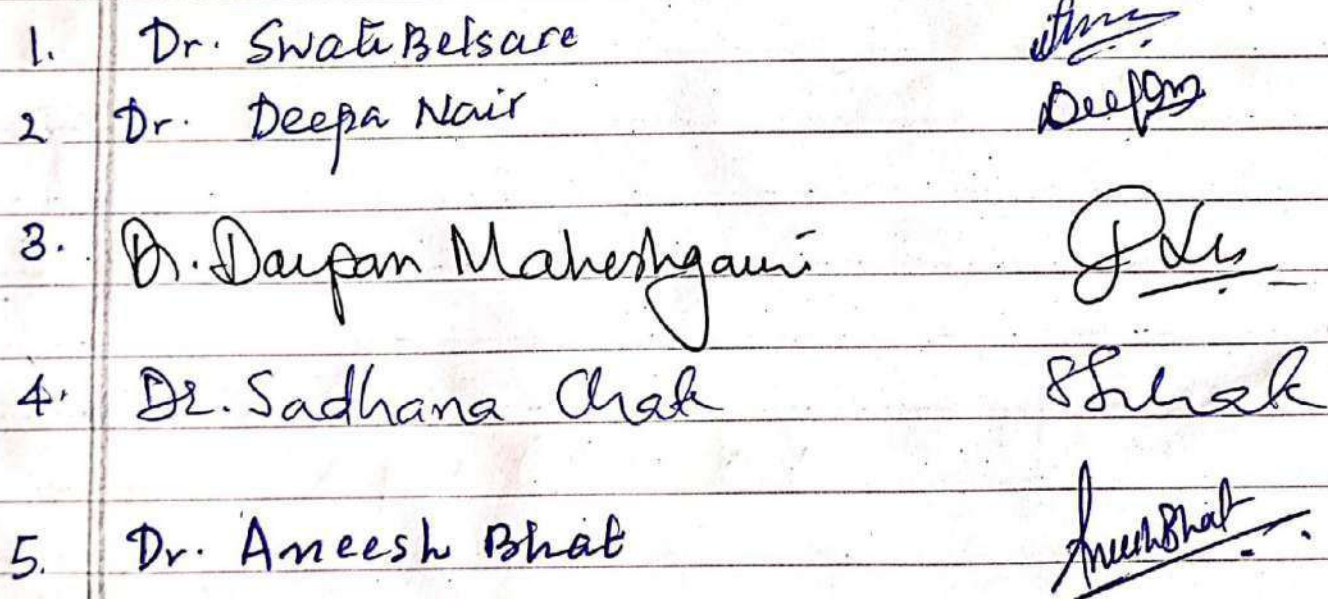 1. Dr. Swati Belsare
2 Dr. Deepa Nair Deepa
3. Dr. Darpan Maheshgauri
4. Dr. Sadhana Chak SSChak
5. Dr. Aneesh Bhat AneeshBhat